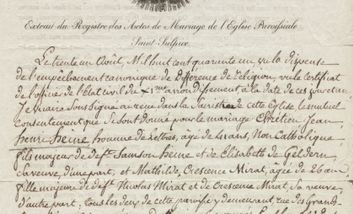 Extrait du Registre des Actes de Mariage de l'Eglise Paroissiale
Saint-Sulpice.
Le trente un Août, Mil huit cent quarante un vu la dispense
de l'empêchement canonique de différence de religion, vu le certificat
de l'officier de l'Etat civil du XIme arrondissement à la date de ces jour
Je soussigné ai reçu dans la Sacristie de cette Eglise le mutuel
Consentement que se sont donné pour le mariage Chrétien Jean
henri heine, homme de lettres, âgé de ans, Non Catholique
fils majeur de deft Samson heine et de Elisabeth de Geldern
sa veuve, d'une part, et Mathilde, Crescence Mirat, âgée de 26 ans
fille majeure de deft Nicolas Mirat et de Crescence Mirat, sa veuve,
d'autre part, tous les deux de cette paroisse y demeurant rue des grands